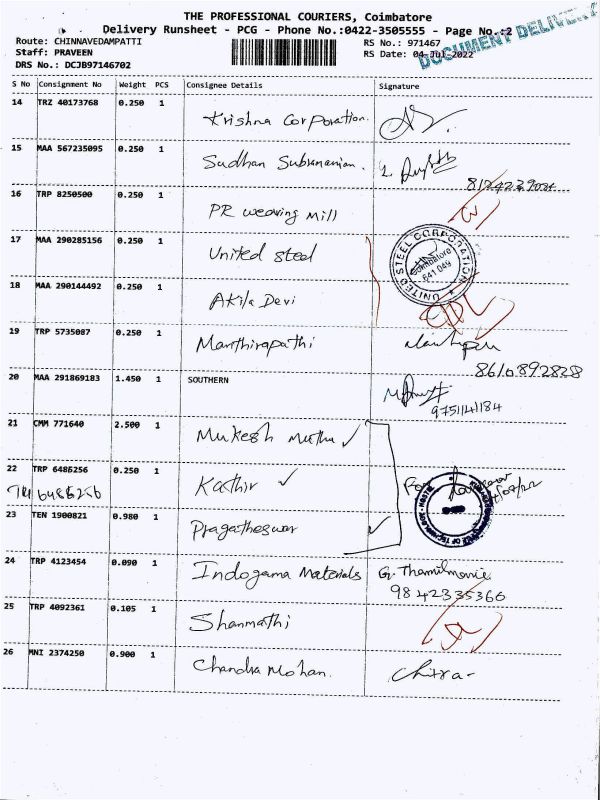 THE PROFESSIONAL COURIERS, Coimbatore
Delivery Runsheet - PCG - Phone No.:0422-3505555 - Page No.:2
DOCUMENT DELIVERY
Route: CHINNAVEDAMPATTI
RS No.: 971467
Staff: PRAVEEN
RS Date: 04-Jul-2022
DRS No.: DCJB97146702
S No Consignment No Weight PCS Consignee Details Signature
14 TRZ 40173768 0.250 1 Krishna Corporation.
15 MAA 567235095 0.250 1 Sudhan Subramanian.
16 TRP 8250500 0.250 1 PR weaving Mill
17 MAA 290285156 0.250 1 United steel
UNITED STEEL CORPORATION
Coimbatore
641 049
18 MAA 290144492 0.250 1 Akila Devi
19 TRP 5735087 0.250 1 Manthirapathi
8610892828
20 MAA 291869183 1.450 1 SOUTHERN
9751141184
21 CMM 771640 2.500 1 Mukesh Muthu ✓
22 TRP 6486256 0.250 1 Kathir ✓
6486256
23 TEN 1900821 0.980 1 Pragatheswar ✓
24 TRP 4123454 0.090 1 Indogama Materials G. Thamilmanie
9842335366
25 TRP 4092361 0.105 1 Shanmathi
26 MNI 2374250 0.900 1 Chandra Mohan. Chitra-